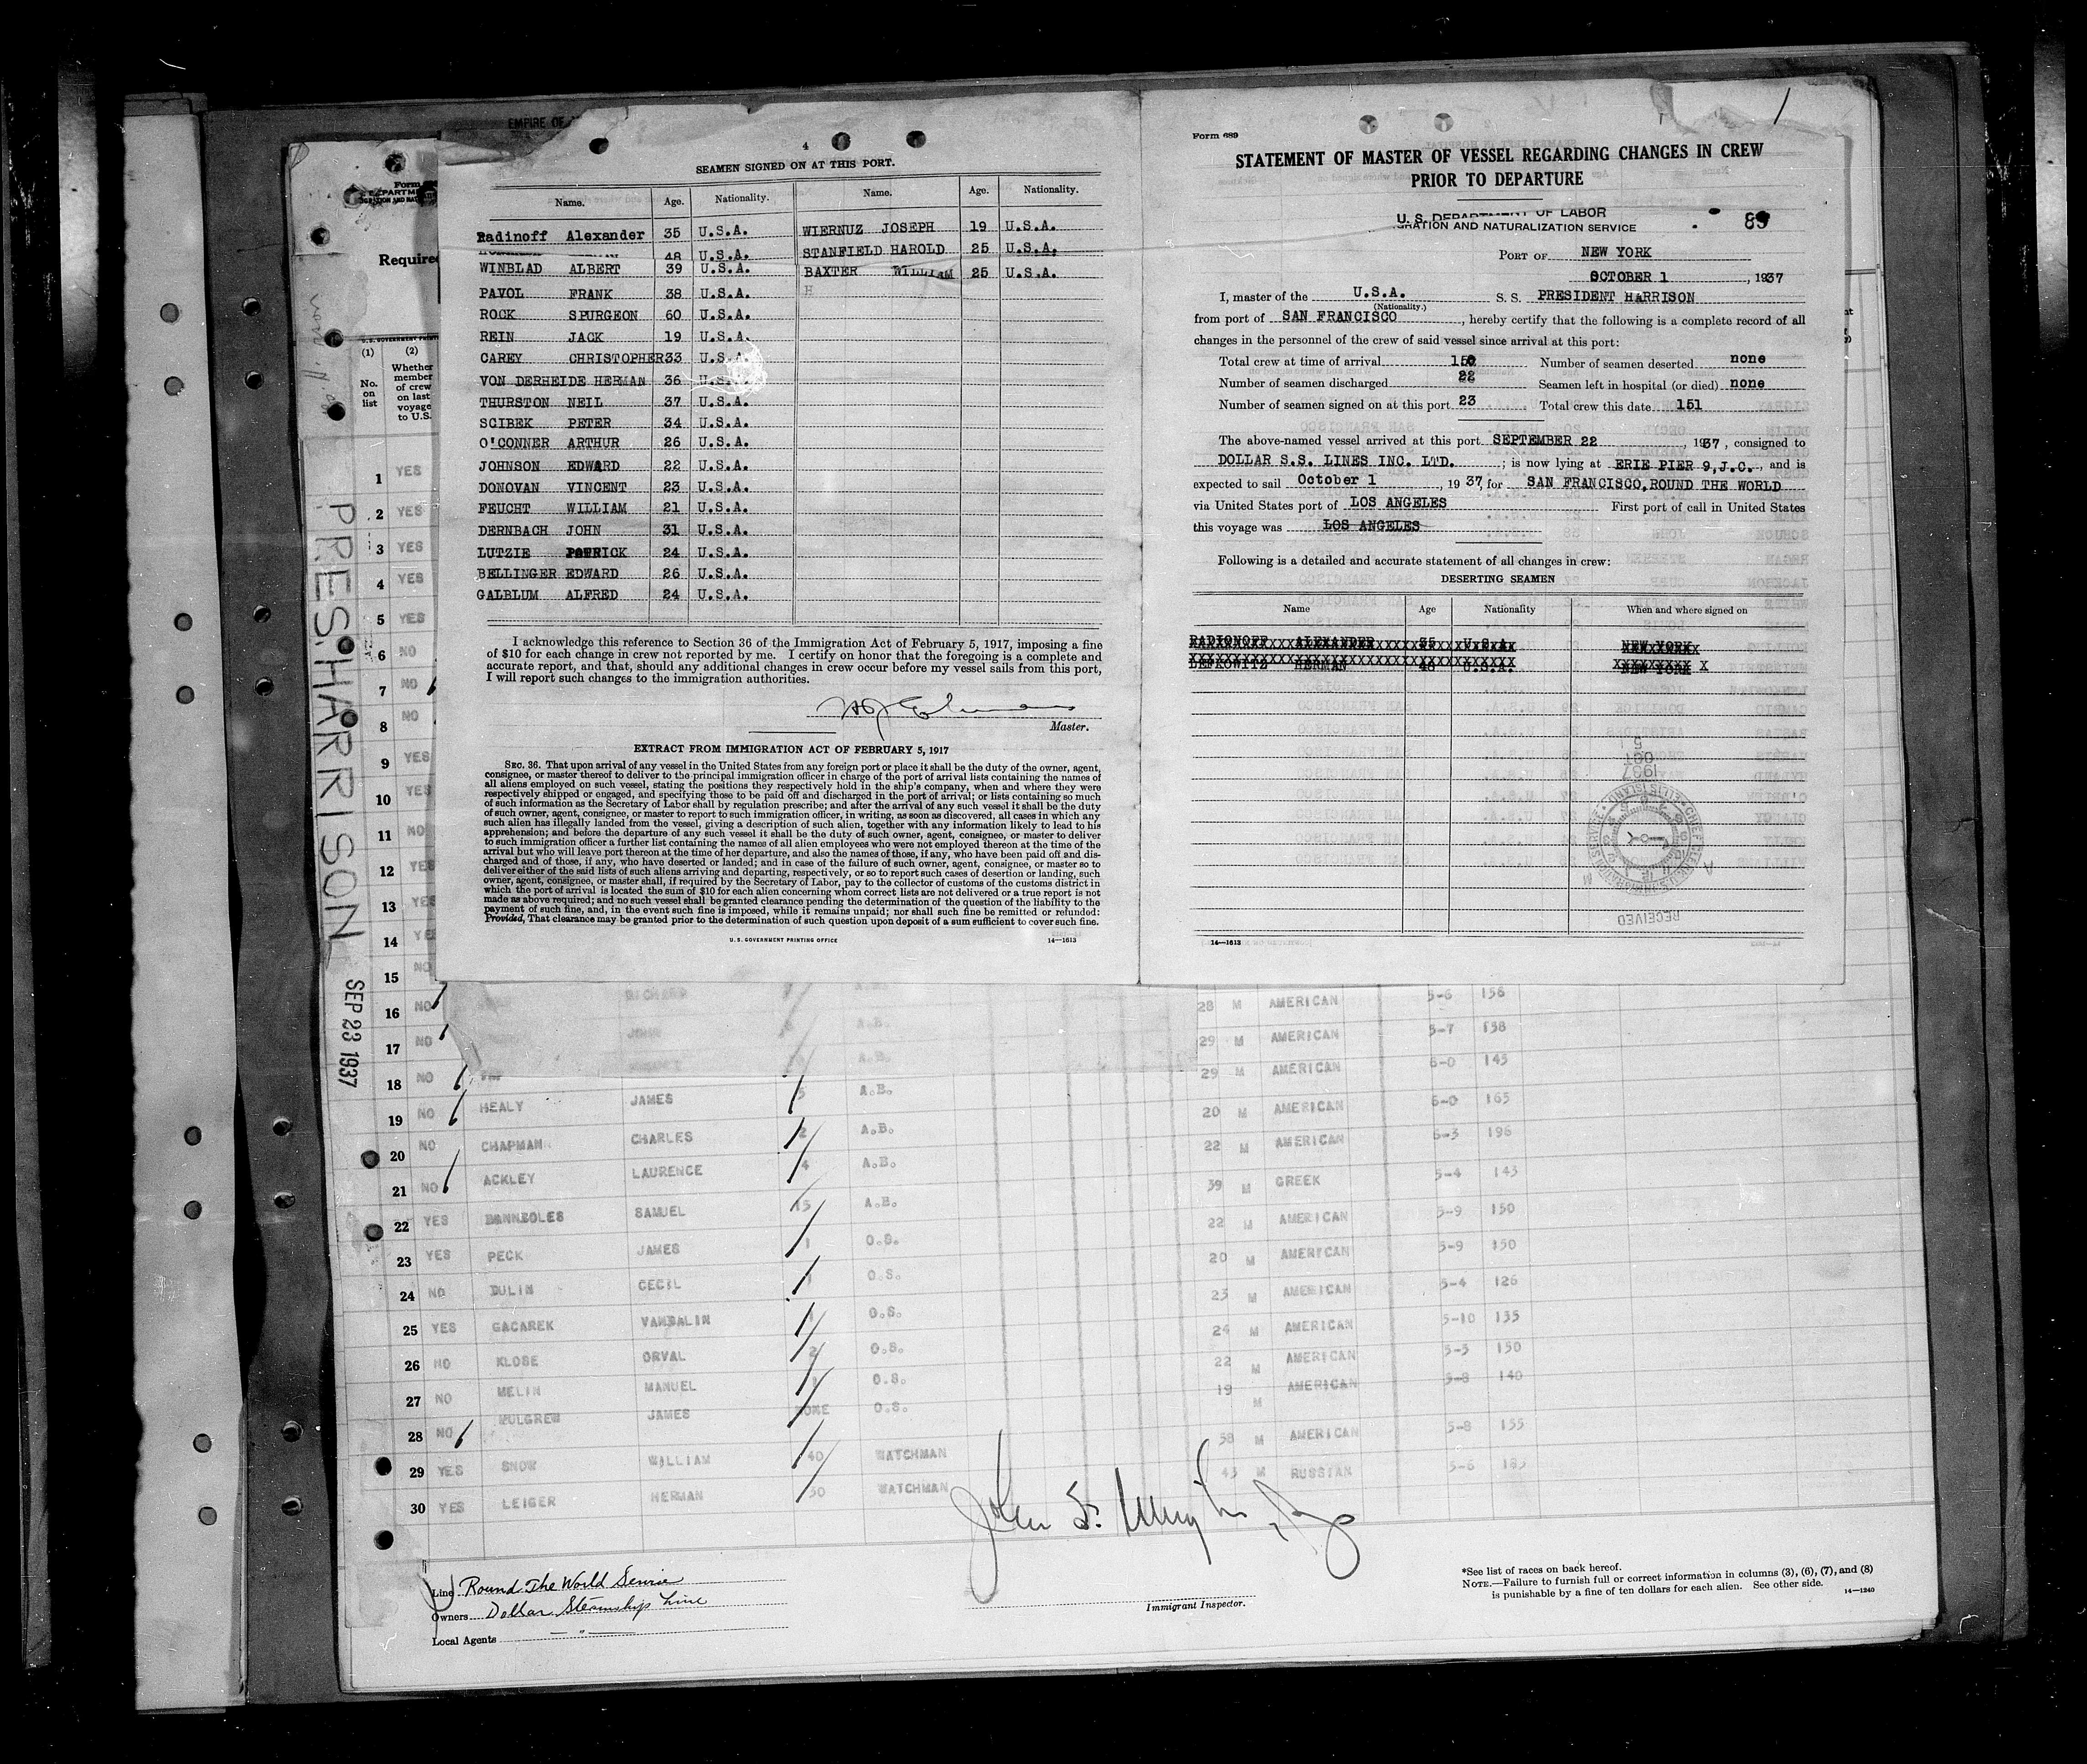 EMPIRE OF
4
SEAMEN SIGNED ON AT THIS PORT.
Name. Age. Nationality. Name. Age. Nationality.
Radinoff Alexander 35 U.S.A. WIERNUZ JOSEPH 19 U.S.A.
48 U.S.A. STANFIELD HAROLD 25 U.S.A.
WINBLAD ALBERT 39 U.S.A. BAXTER WILLIAM 25 U.S.A.
PAVOL FRANK 38 U.S.A. H
ROCK SPURGEON 60 U.S.A.
REIN JACK 19 U.S.A.
CAREY CHRISTOPHER 33 U.S.A.
VON DERHEIDE HERMAN 36 U.S.A.
THURSTON NEIL 37 U.S.A.
SCIBEK PETER 34 U.S.A.
O'CONNER ARTHUR 26 U.S.A.
JOHNSON EDWARD 22 U.S.A.
DONOVAN VINCENT 23 U.S.A.
FEUCHT WILLIAM 21 U.S.A.
DERNBACH JOHN 31 U.S.A.
LUTZIE PATRICK 24 U.S.A.
BELLINGER EDWARD 26 U.S.A.
GALBLUM ALFRED 24 U.S.A.
I acknowledge this reference to Section 36 of the Immigration Act of February 5, 1917, imposing a fine
of $10 for each change in crew not reported by me. I certify on honor that the foregoing is a complete and
accurate report, and that, should any additional changes in crew occur before my vessel sails from this port,
I will report such changes to the immigration authorities.
Master.
EXTRACT FROM IMMIGRATION ACT OF FEBRUARY 5, 1917
SEC. 36. That upon arrival of any vessel in the United States from any foreign port or place it shall be the duty of the owner, agent,
consignee, or master thereof to deliver to the principal immigration officer in charge of the port of arrival lists containing the names of
all aliens employed on such vessel, stating the positions they respectively hold in the ship's company, when and where they were
respectively shipped or engaged, and specifying those to be paid off and discharged in the port of arrival; or lists containing so much
of such information as the Secretary of Labor shall by regulation prescribe; and after the arrival of any such vessel it shall be the duty
of such owner, agent, consignee, or master to report to such immigration officer, in writing, as soon as discovered, all cases in which any
such alien has illegally landed from the vessel, giving a description of such alien, together with any information likely to lead to his
apprehension; and before the departure of any such vessel it shall be the duty of such owner, agent, consignee, or master to deliver
to such immigration officer a further list containing the names of all alien employees who were not employed thereon at the time of the
arrival but who will leave port thereon at the time of her departure, and also the names of those, if any, who have been paid off and dis-
charged and of those, if any, who have deserted or landed; and in case of the failure of such owner, agent, consignee, or master so to
deliver either of the said lists of such aliens arriving and departing, respectively, or so to report such cases of desertion or landing, such
owner, agent, consignee, or master shall, if required by the Secretary of Labor, pay to the collector of customs of the customs district in
which the port of arrival is located the sum of $10 for each alien concerning whom correct lists are not delivered or a true report is not
made as above required; and no such vessel shall be granted clearance pending the determination of the question of the liability to the
payment of such fine, and, in the event such fine is imposed, while it remains unpaid; nor shall such fine be remitted or refunded:
Provided, That clearance may be granted prior to the determination of such question upon deposit of a sum sufficient to cover such fine.
U.S. GOVERNMENT PRINTING OFFICE 14—1613
Form 689
STATEMENT OF MASTER OF VESSEL REGARDING CHANGES IN CREW
PRIOR TO DEPARTURE
U. S. DEPARTMENT OF LABOR
GRATION AND NATURALIZATION SERVICE
89
PORT OF NEW YORK
OCTOBER 1, 1937
I, master of the U.S.A. S. S. PRESIDENT HARRISON
(Nationality.)
from port of SAN FRANCISCO, hereby certify that the following is a complete record of all
changes in the personnel of the crew of said vessel since arrival at this port:
Total crew at time of arrival 150 Number of seamen deserted none
Number of seamen discharged 22 Seamen left in hospital (or died) none
Number of seamen signed on at this port 23 Total crew this date 151
The above-named vessel arrived at this port SEPTEMBER 22, 1937, consigned to
DOLLAR S.S. LINES INC. LTD. ; is now lying at ERIE PIER 9, J.C., and is
expected to sail October 1, 1937, for SAN FRANCISCO, ROUND THE WORLD
via United States port of LOS ANGELES First port of call in United States
this voyage was LOS ANGELES
Following is a detailed and accurate statement of all changes in crew:
DESERTING SEAMEN
Name Age Nationality When and where signed on
RADIONOFF ALEXANDER 35 U.S.A. NEW YORK
LEFKOWITZ HERMAN 48 U.S.A. NEW YORK
1937
OCT
5
RECEIVED
14—1613
Form
Required
(1) (2)
No. on list
Whether member of crew on last voyage to U.S.
PRES. HARRISON
SEP 23 1937
1 YES
2 YES
3 YES
4 YES
5 YES
6 NO
7 NO
8 NO
9 YES
10 YES
11 NO
12 YES
13 YES
14 YES
15 NO
16 NO RICHARD A.B. 28 M AMERICAN 5-6 156
17 NO JOHN A.B. 29 M AMERICAN 5-7 158
18 NO A.B. 29 M AMERICAN 6-0 145
19 NO HEALY JAMES 3 A.B. 20 M AMERICAN 6-0 165
20 NO CHAPMAN CHARLES 2 A.B. 22 M AMERICAN 6-3 196
21 NO ACKLEY LAURENCE 4 A.B. 39 M GREEK 5-4 143
22 YES BANNEOLES SAMUEL 15 A.B. 22 M AMERICAN 5-9 150
23 YES PECK JAMES 1 O.S. 20 M AMERICAN 5-9 150
24 NO DULIN CECIL 1 O.S. 23 M AMERICAN 5-4 126
25 YES GACAREK VANDALIN 1 O.S. 24 M AMERICAN 5-10 135
26 NO KLOSE ORVAL 2 O.S. 22 M AMERICAN 5-5 150
27 NO MELIN MANUEL 1 O.S. 19 M AMERICAN 5-8 140
28 NO MULGREW JAMES NONE O.S. 58 M AMERICAN 5-8 155
29 YES SNOW WILLIAM 40 WATCHMAN 43 M RUSSIAN 5-6 185
30 YES LEIGER HERMAN 30 WATCHMAN
Line Round The World Service
Owners Dollar Steamship Line
Local Agents "
Immigrant Inspector.
*See list of races on back hereof.
NOTE.—Failure to furnish full or correct information in columns (3), (6), (7), and (8)
is punishable by a fine of ten dollars for each alien. See other side. 14—1240